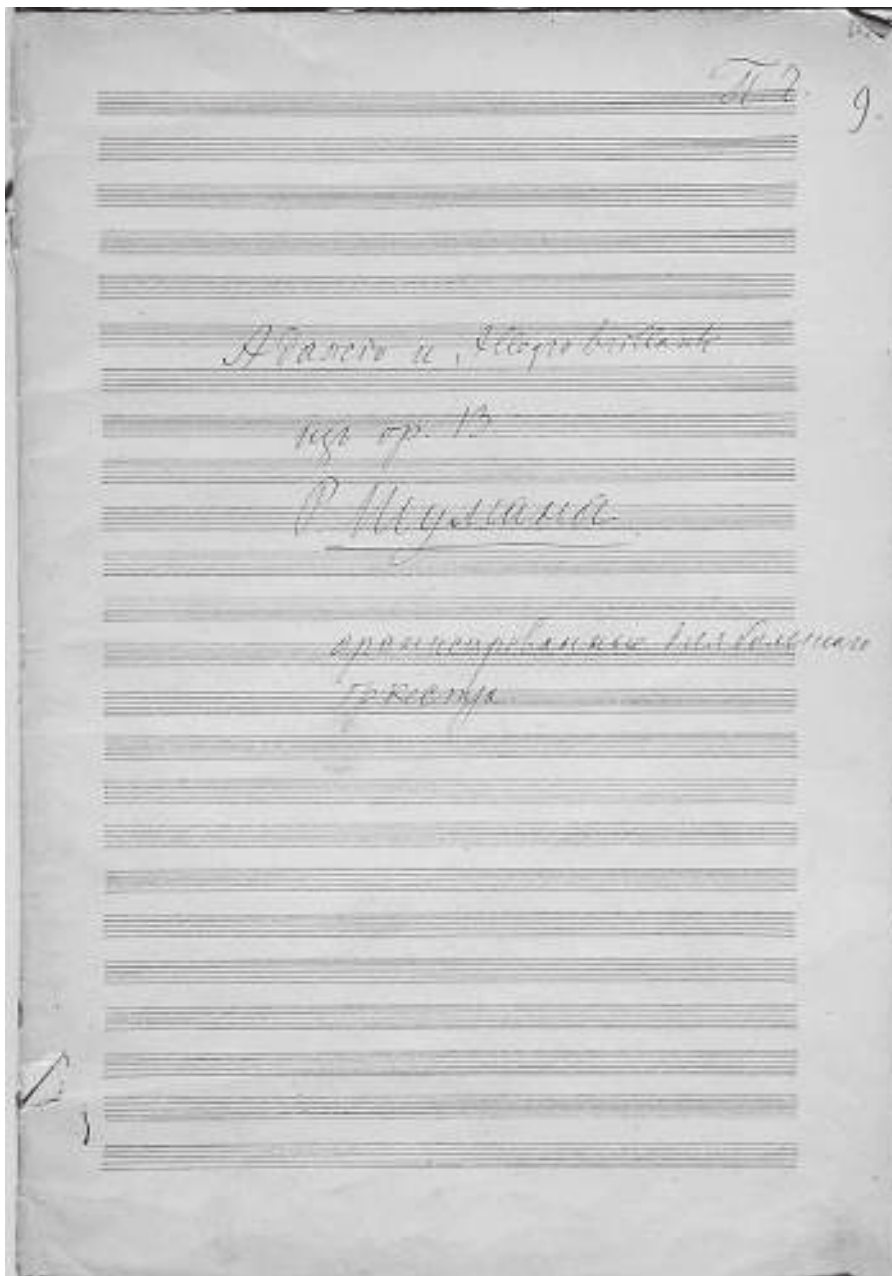 П. Ч.
9.
Адажіо и Allegro brillante
изъ op. 13
Р Шумана
оркестрованные для большаго
оркестра